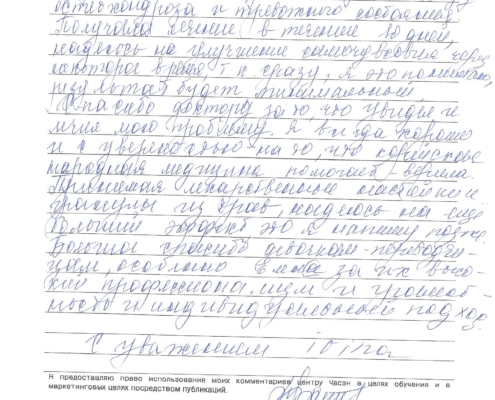 остеохондроза и тревожного состояния.
Получила лечение в течение 10 дней,
надеюсь на улучшение самочувствия через
некоторое время, т.к. сразу, я это понимаю,
результат будет минимальный
Спасибо доктору за то, что увидел и
мою проблему. Я всегда хорошо
и с уверенностью на то, что корейская
народная медицина помогает - верила.
Принимая лекарственные настойки и
гранулы из трав, надеюсь на еще
больший это я напишу позже.
Большое спасибо девочкам-переводчи-
цам, особенно за их высо-
кий профессионализм и
ность и индивидуальный подход.
С уважением
Я предоставляю право использования моих комментариев центру Часэн в целях обучения и в
маркетинговых целях посредством публикаций.